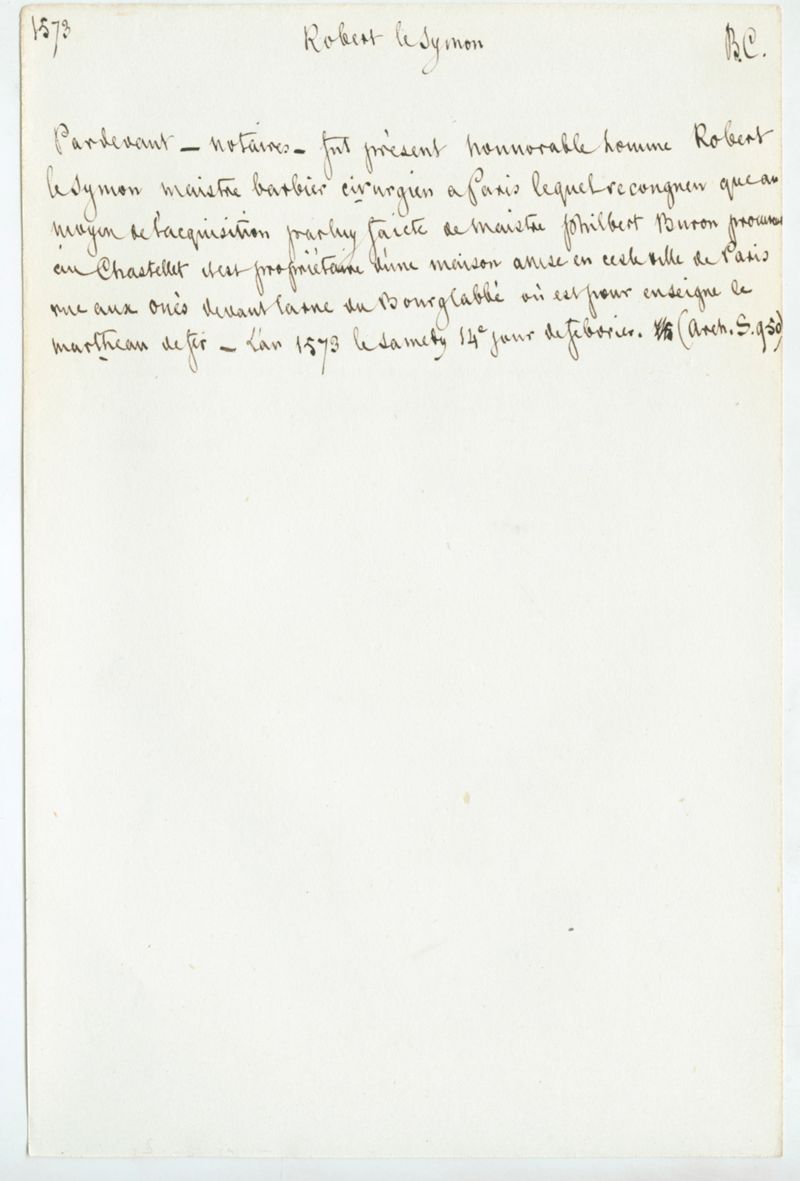 1573
Robert le Symon
B.C.
Pardevant — notaires — fut présent honnorable homme Robert
le Symon maistre barbier cirurgien a Paris lequel recongneu que au
moyen de l'acquisition par luy faicte de maistre Philbert Buron procureur
au Chastellet il est propriétaire d'une maison assise en ceste ville de Paris
rue aux Oués devant la rue du Bourglabbé où est pour enseigne le
martheau de fer — L'an 1573 le samedy 14e jour de febvrier. (Arch. S. 950)